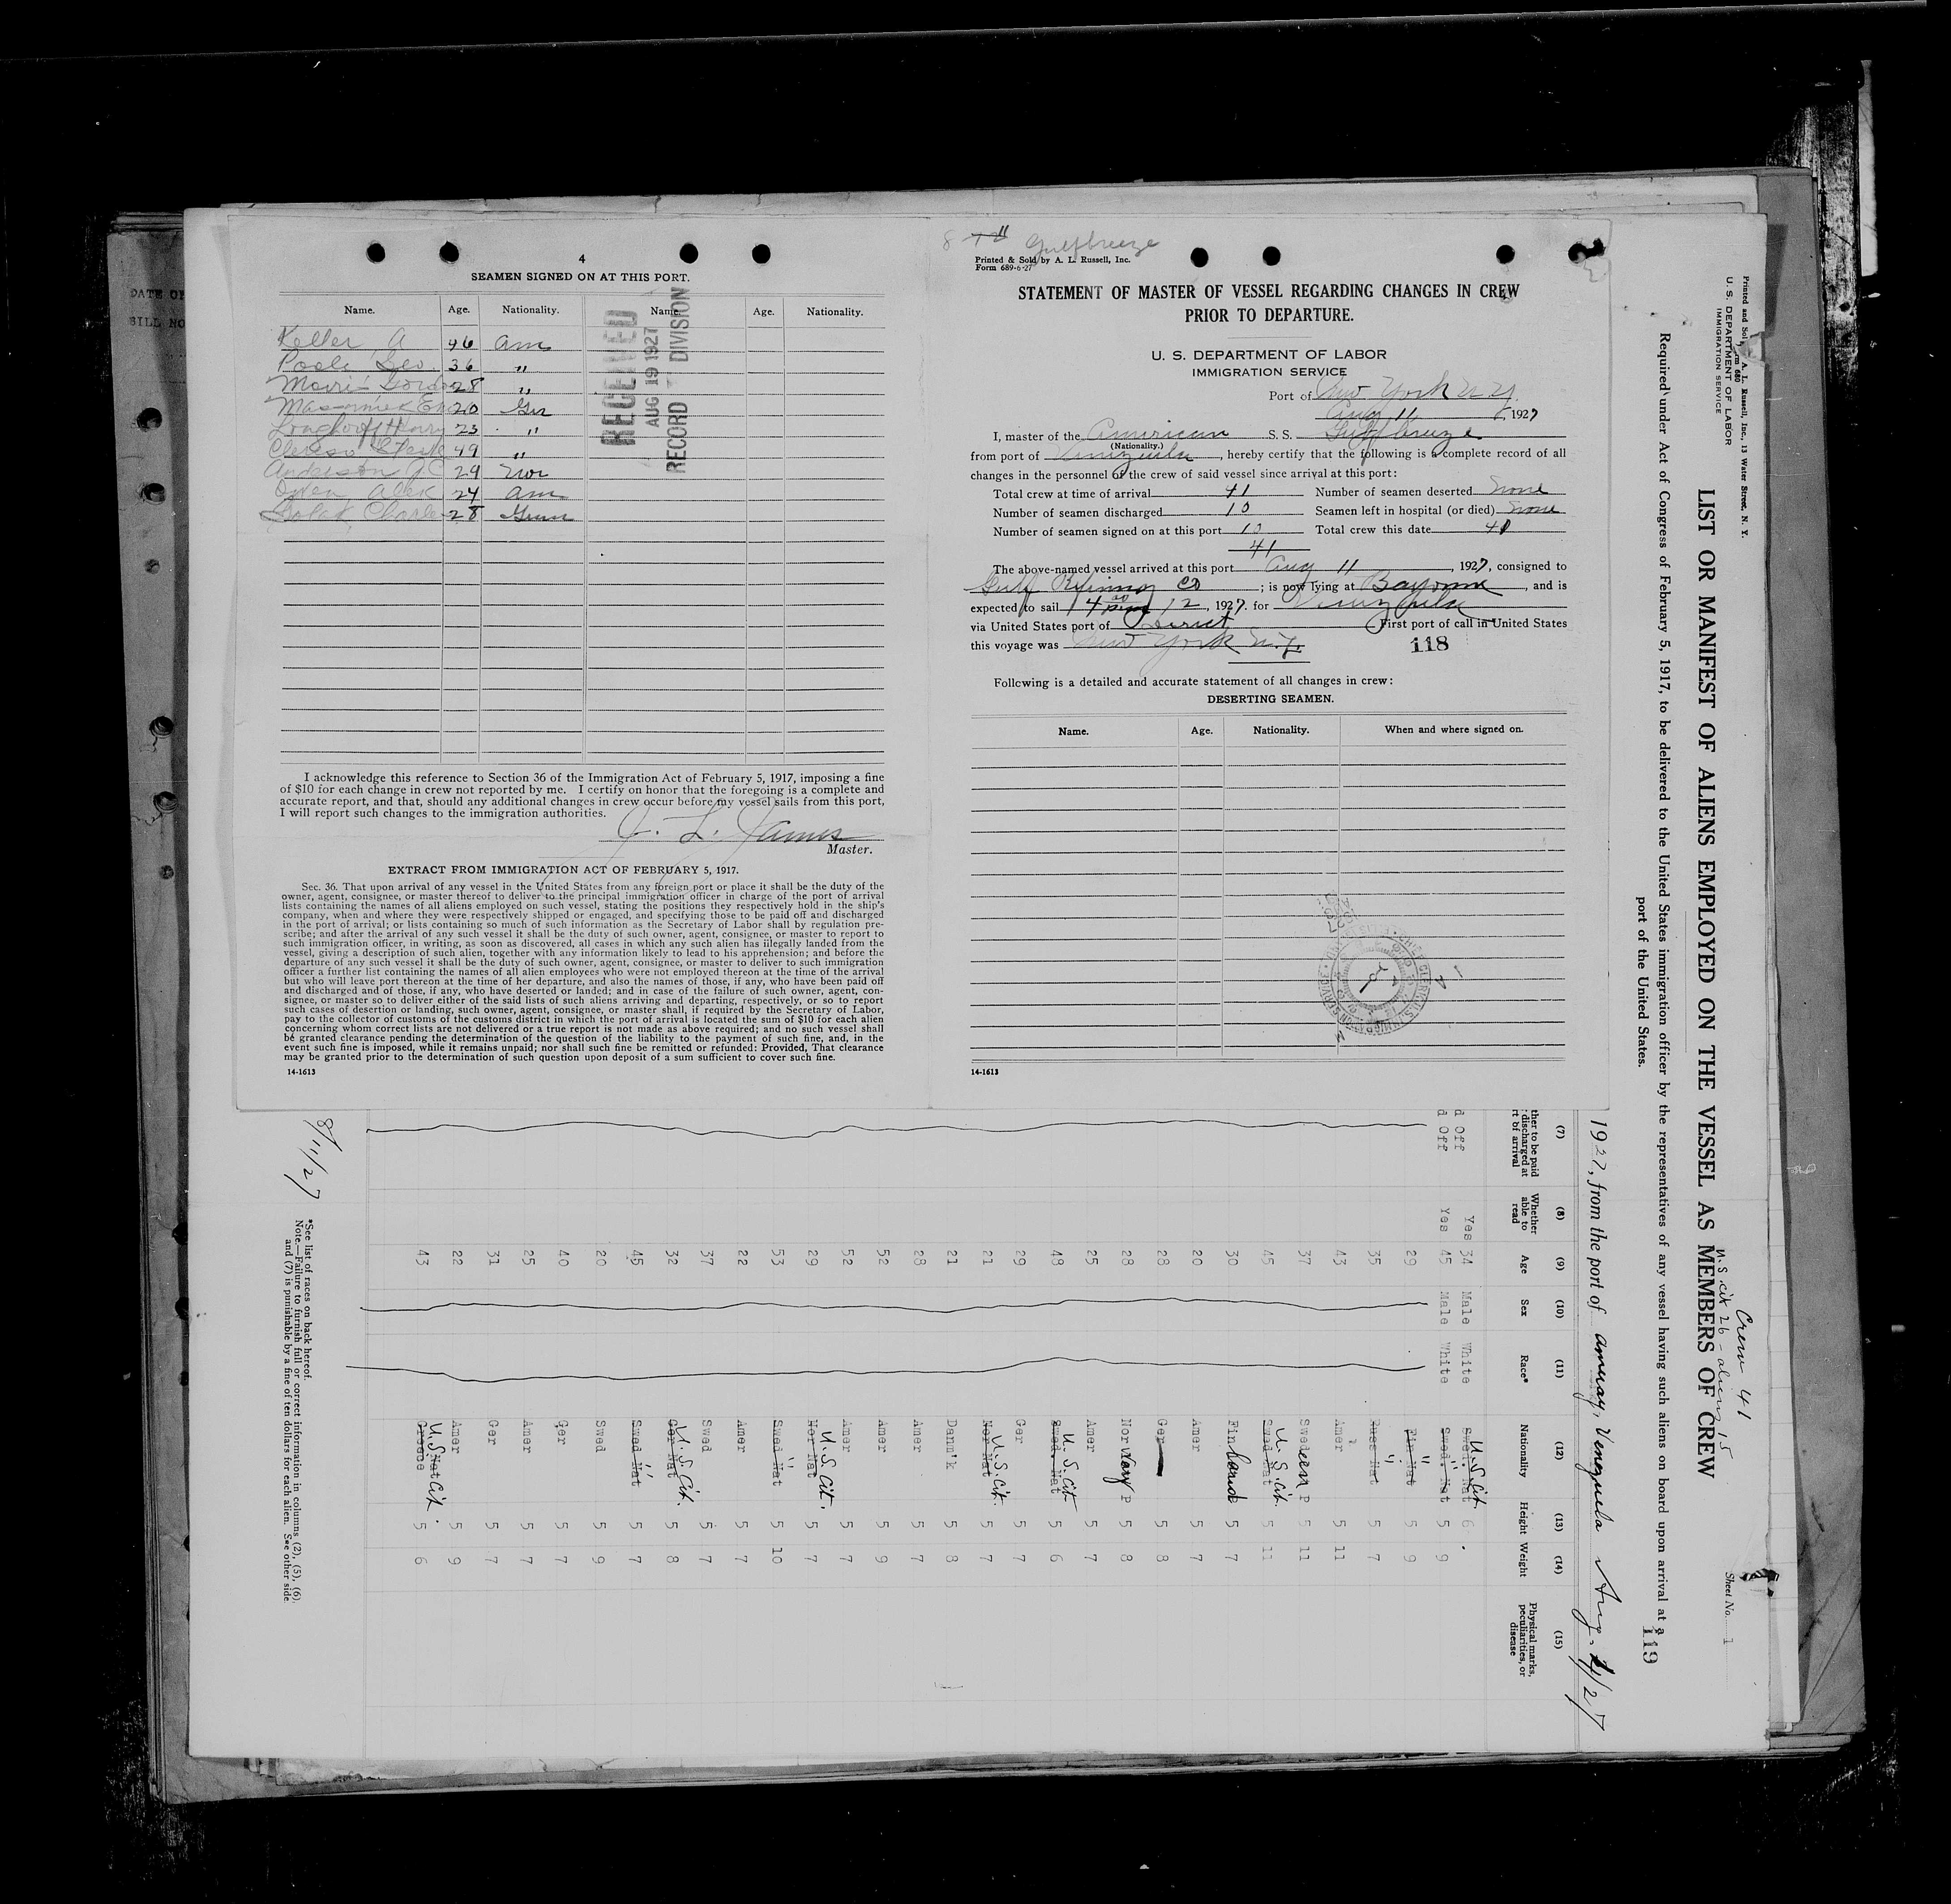 4
SEAMEN SIGNED ON AT THIS PORT.
Name. Age. Nationality. Name. Age. Nationality.
Keller, A 46 Am
Poole Geo. 36 "
Morris Gordon 28 "
20 Ger
Henry 23 "
49 "
Anderson J C 29 Nor
Owen, Alek 24 Am
Charles 28 Germ
RECEIVED
AUG 19 1927
RECORD DIVISION
I acknowledge this reference to Section 36 of the Immigration Act of February 5, 1917, imposing a fine
of $10 for each change in crew not reported by me. I certify on honor that the foregoing is a complete and
accurate report, and that, should any additional changes in crew occur before my vessel sails from this port,
I will report such changes to the immigration authorities.
J. L. James
Master.
EXTRACT FROM IMMIGRATION ACT OF FEBRUARY 5, 1917.
Sec. 36. That upon arrival of any vessel in the United States from any foreign port or place it shall be the duty of the
owner, agent, consignee, or master thereof to deliver to the principal immigration officer in charge of the port of arrival
lists containing the names of all aliens employed on such vessel, stating the positions they respectively hold in the ship's
company, when and where they were respectively shipped or engaged, and specifying those to be paid off and discharged
in the port of arrival; or lists containing so much of such information as the Secretary of Labor shall by regulation pre-
scribe; and after the arrival of any such vessel it shall be the duty of such owner, agent, consignee, or master to report to
such immigration officer, in writing, as soon as discovered, all cases in which any such alien has illegally landed from the
vessel, giving a description of such alien, together with any information likely to lead to his apprehension; and before the
departure of any such vessel it shall be the duty of such owner, agent, consignee, or master to deliver to such immigration
officer a further list containing the names of all alien employees who were not employed thereon at the time of the arrival
but who will leave port thereon at the time of her departure, and also the names of those, if any, who have been paid off
and discharged and of those, if any, who have deserted or landed; and in case of the failure of such owner, agent, con-
signee, or master so to deliver either of the said lists of such aliens arriving and departing, respectively, or so to report
such cases of desertion or landing, such owner, agent, consignee, or master shall, if required by the Secretary of Labor,
pay to the collector of customs of the customs district in which the port of arrival is located the sum of $10 for each alien
concerning whom correct lists are not delivered or a true report is not made as above required; and no such vessel shall
be granted clearance pending the determination of the question of the liability to the payment of such fine, and, in the
event such fine is imposed, while it remains unpaid; nor shall such fine be remitted or refunded: Provided, That clearance
may be granted prior to the determination of such question upon deposit of a sum sufficient to cover such fine.
14-1613
Gulfbreeze
Printed & Sold by A. L. Russell, Inc.
Form 689-6-27
STATEMENT OF MASTER OF VESSEL REGARDING CHANGES IN CREW
PRIOR TO DEPARTURE.
U. S. DEPARTMENT OF LABOR
IMMIGRATION SERVICE
Port of New York N.Y.
Aug 11, 1927
I, master of the American S. S. Gulfbreeze
(Nationality.)
from port of Venezuela, hereby certify that the following is a complete record of all
changes in the personnel of the crew of said vessel since arrival at this port:
Total crew at time of arrival 41 Number of seamen deserted None
Number of seamen discharged 10 Seamen left in hospital (or died) None
Number of seamen signed on at this port 10 Total crew this date 41
41
The above-named vessel arrived at this port Aug 11, 1927, consigned to
Gulf Refining Co; is now lying at Bayonne, and is
expected to sail 4 00 pm 12, 1927. for Venezuela
via United States port of Direct First port of call in United States
this voyage was New York N.Y. 118
Following is a detailed and accurate statement of all changes in crew:
DESERTING SEAMEN.
Name. Age. Nationality. When and where signed on.
14-1613
Printed and Sold by A. L. Russell, Inc., 13 Water Street, N. Y.
Form 680
U. S. DEPARTMENT OF LABOR
IMMIGRATION SERVICE
Crew 41
U.S. cit 26 - aliens 15
Sheet No. 1
LIST OR MANIFEST OF ALIENS EMPLOYED ON THE VESSEL AS MEMBERS OF CREW
Required under Act of Congress of February 5, 1917, to be delivered to the United States immigration officer by the representatives of any vessel having such aliens on board upon arrival at a
port of the United States.
119
1927, from the port of Amuay, Venezuela Aug. 4/27
(7) (8) (9) (10) (11) (12) (13) (14) (15)
ther to be paid discharged at rt of arrival Whether able to read Age Sex Race* Nationality Height Weight Physical marks, peculiarities, or disease
d Off Yes 34 Male White Swed. Nat U.S. Cit. 6
d Off Yes 45 Male White Swed. Nat " 5 9
29 Fin Nat " 5 9
35 Russ Nat " 5 7
43 Amer 5 11
37 Sweden P 5 11
45 Swed Nat U.S. Cit. 5 11
30 Finland 5 7
20 Amer 5 7
28 Ger 5 8
28 Norway P 5 8
25 Amer 5 7
48 Swed. Nat U.S. Cit 5 6
29 Ger 5 7
21 Nor Nat U.S. Cit. 5 7
21 Danm'k 5 8
28 Amer 5 7
52 Amer 5 9
52 Amer 5 7
29 Nor Nat U.S. Cit. 5 7
53 Swed Nat " 5 10
22 Amer 5 7
37 Swed 5 7
32 Ger Nat U.S. Cit. 5 8
45 Swed Nat " 5 7
20 Swed 5 9
40 Ger 5 7
25 Amer 5 7
31 Ger 5 7
22 Amer 5 9
43 Greece Nat U.S. Cit. 5 6
*See list of races on back hereof.
Note.—Failure to furnish full or correct information in columns (2), (5), (6),
and (7) is punishable by a fine of ten dollars for each alien. See other side.
8/11/27
DATE OF
BILL NO